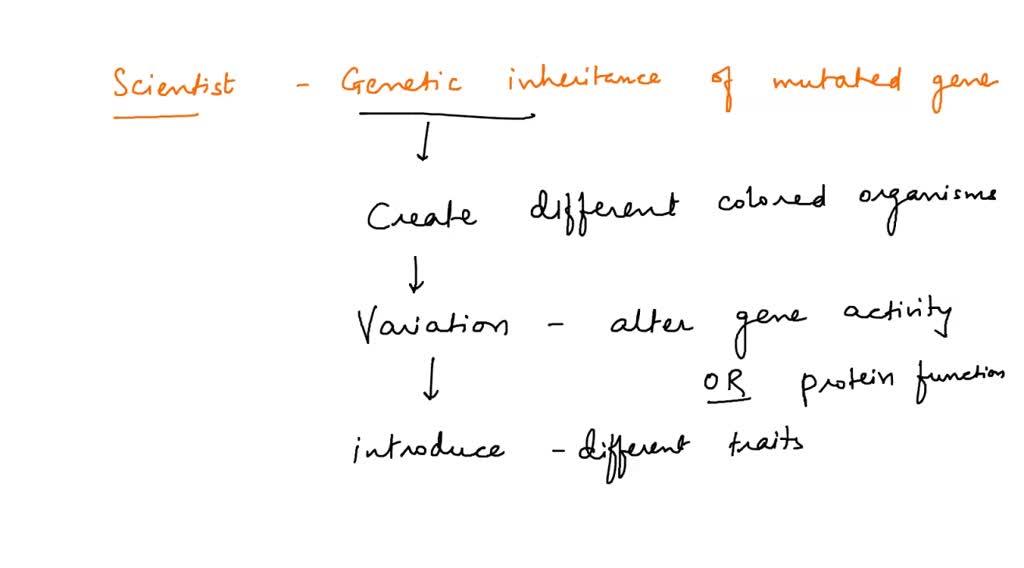 Scientist - Genetic inheritance of mutated gene
Create different colored organisms
Variation - alter gene activity
OR protein function
introduce - different traits